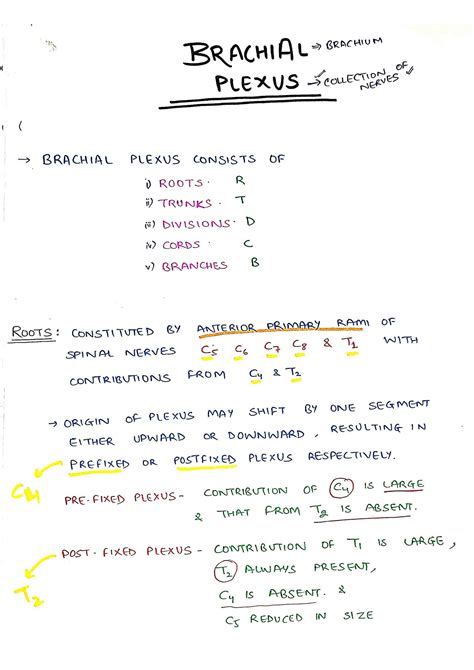 BRACHIAL → BRACHIUM
PLEXUS → COLLECTION OF NERVES
→ BRACHIAL PLEXUS CONSISTS OF
i) ROOTS. R
ii) TRUNKS. T
iii) DIVISIONS. D
iv) CORDS. C
v) BRANCHES B
ROOTS: CONSTITUTED BY ANTERIOR PRIMARY RAMI OF
SPINAL NERVES C5 C6 C7 C8 & T1 WITH
CONTRIBUTIONS FROM C4 & T2
→ ORIGIN OF PLEXUS MAY SHIFT BY ONE SEGMENT
EITHER UPWARD OR DOWNWARD, RESULTING IN
PREFIXED OR POSTFIXED PLEXUS RESPECTIVELY.
C4
PRE-FIXED PLEXUS - CONTRIBUTION OF C4 IS LARGE
& THAT FROM T2 IS ABSENT.
POST-FIXED PLEXUS - CONTRIBUTION OF T1 IS LARGE,
T2
T2 ALWAYS PRESENT,
C4 IS ABSENT. &
C5 REDUCED IN SIZE